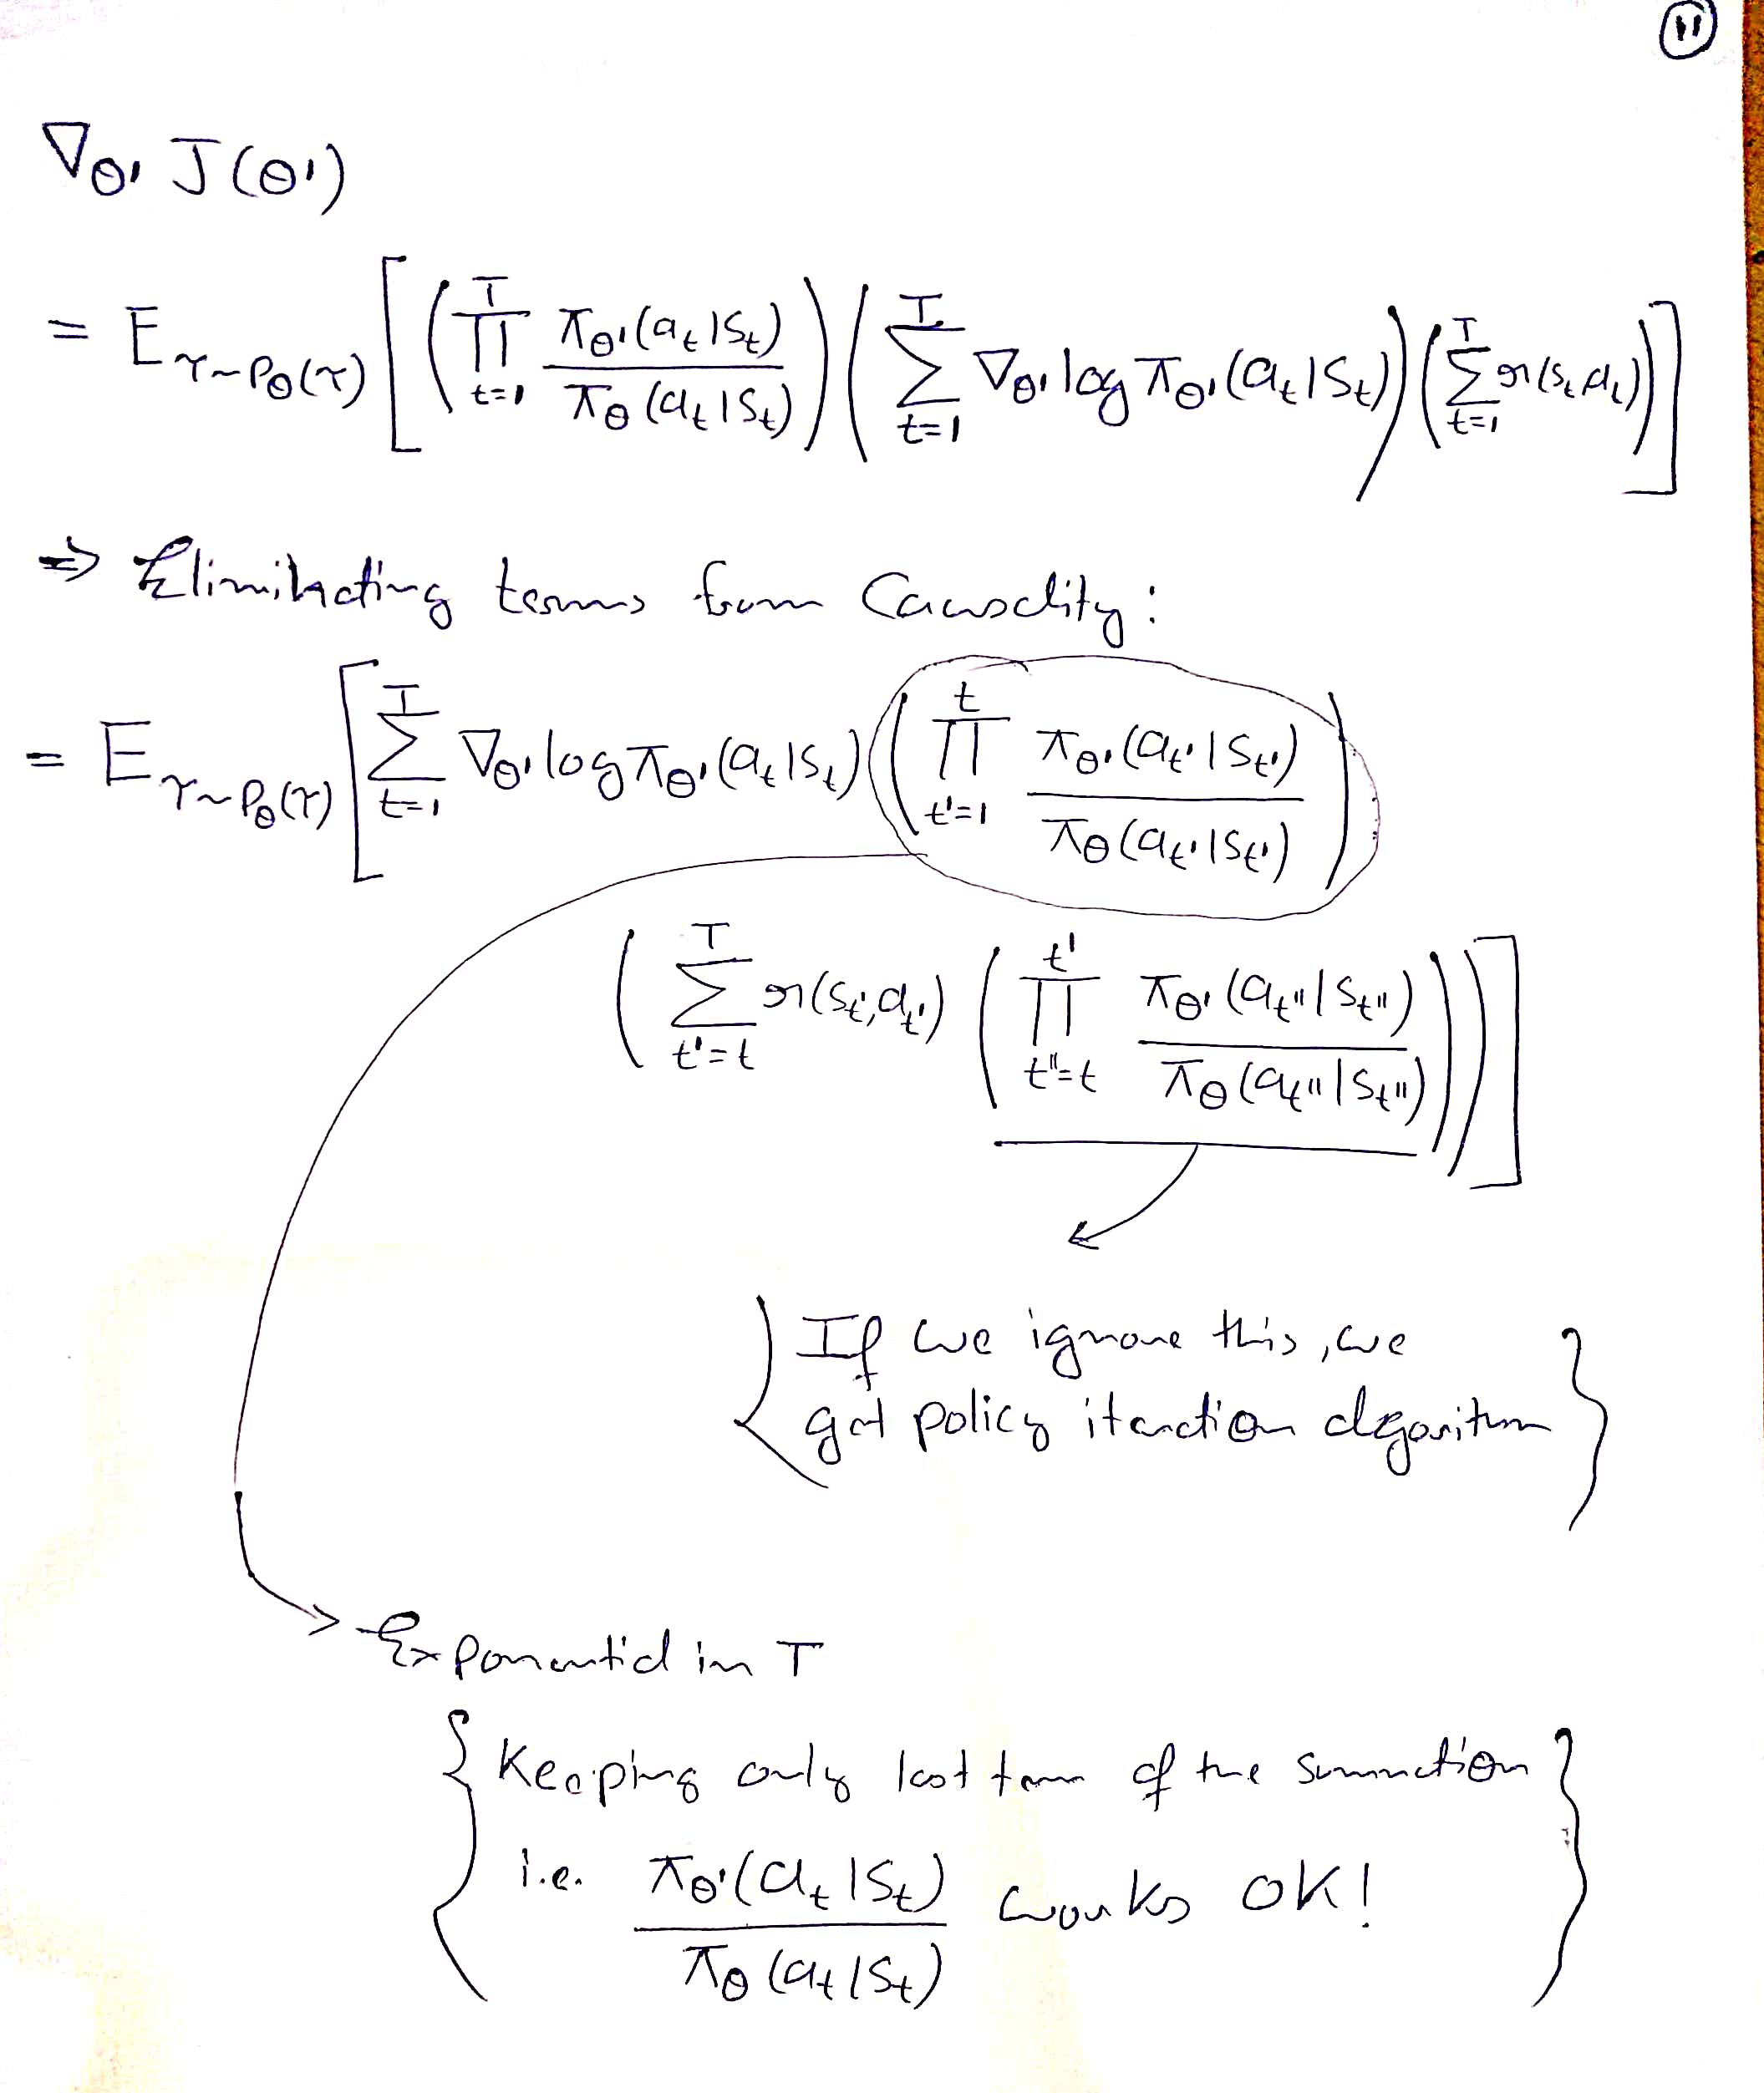 11
∇θ' J(θ')
= E τ~Pθ(τ) [ ( ∏ t=1 T πθ'(at|st) / πθ(at|st) ) ( Σ t=1 T ∇θ' log πθ'(at|st) ) ( Σ t=1 T r(st,at) ) ]
⇒ Eliminating terms from Causality:
= E τ~Pθ(τ) [ Σ t=1 T ∇θ' log πθ'(at|st) ( ∏ t'=1 t πθ'(at'|st') / πθ(at'|st') )
( Σ t'=t T r(st',at') ( ∏ t''=t t' πθ'(at''|st'') / πθ(at''|st'') ) ) ]
{ If we ignore this, we
get policy iteration algorithm }
→ Exponential in T
{ Keeping only last term of the summation
i.e. πθ'(at|st) / πθ(at|st) works OK! }